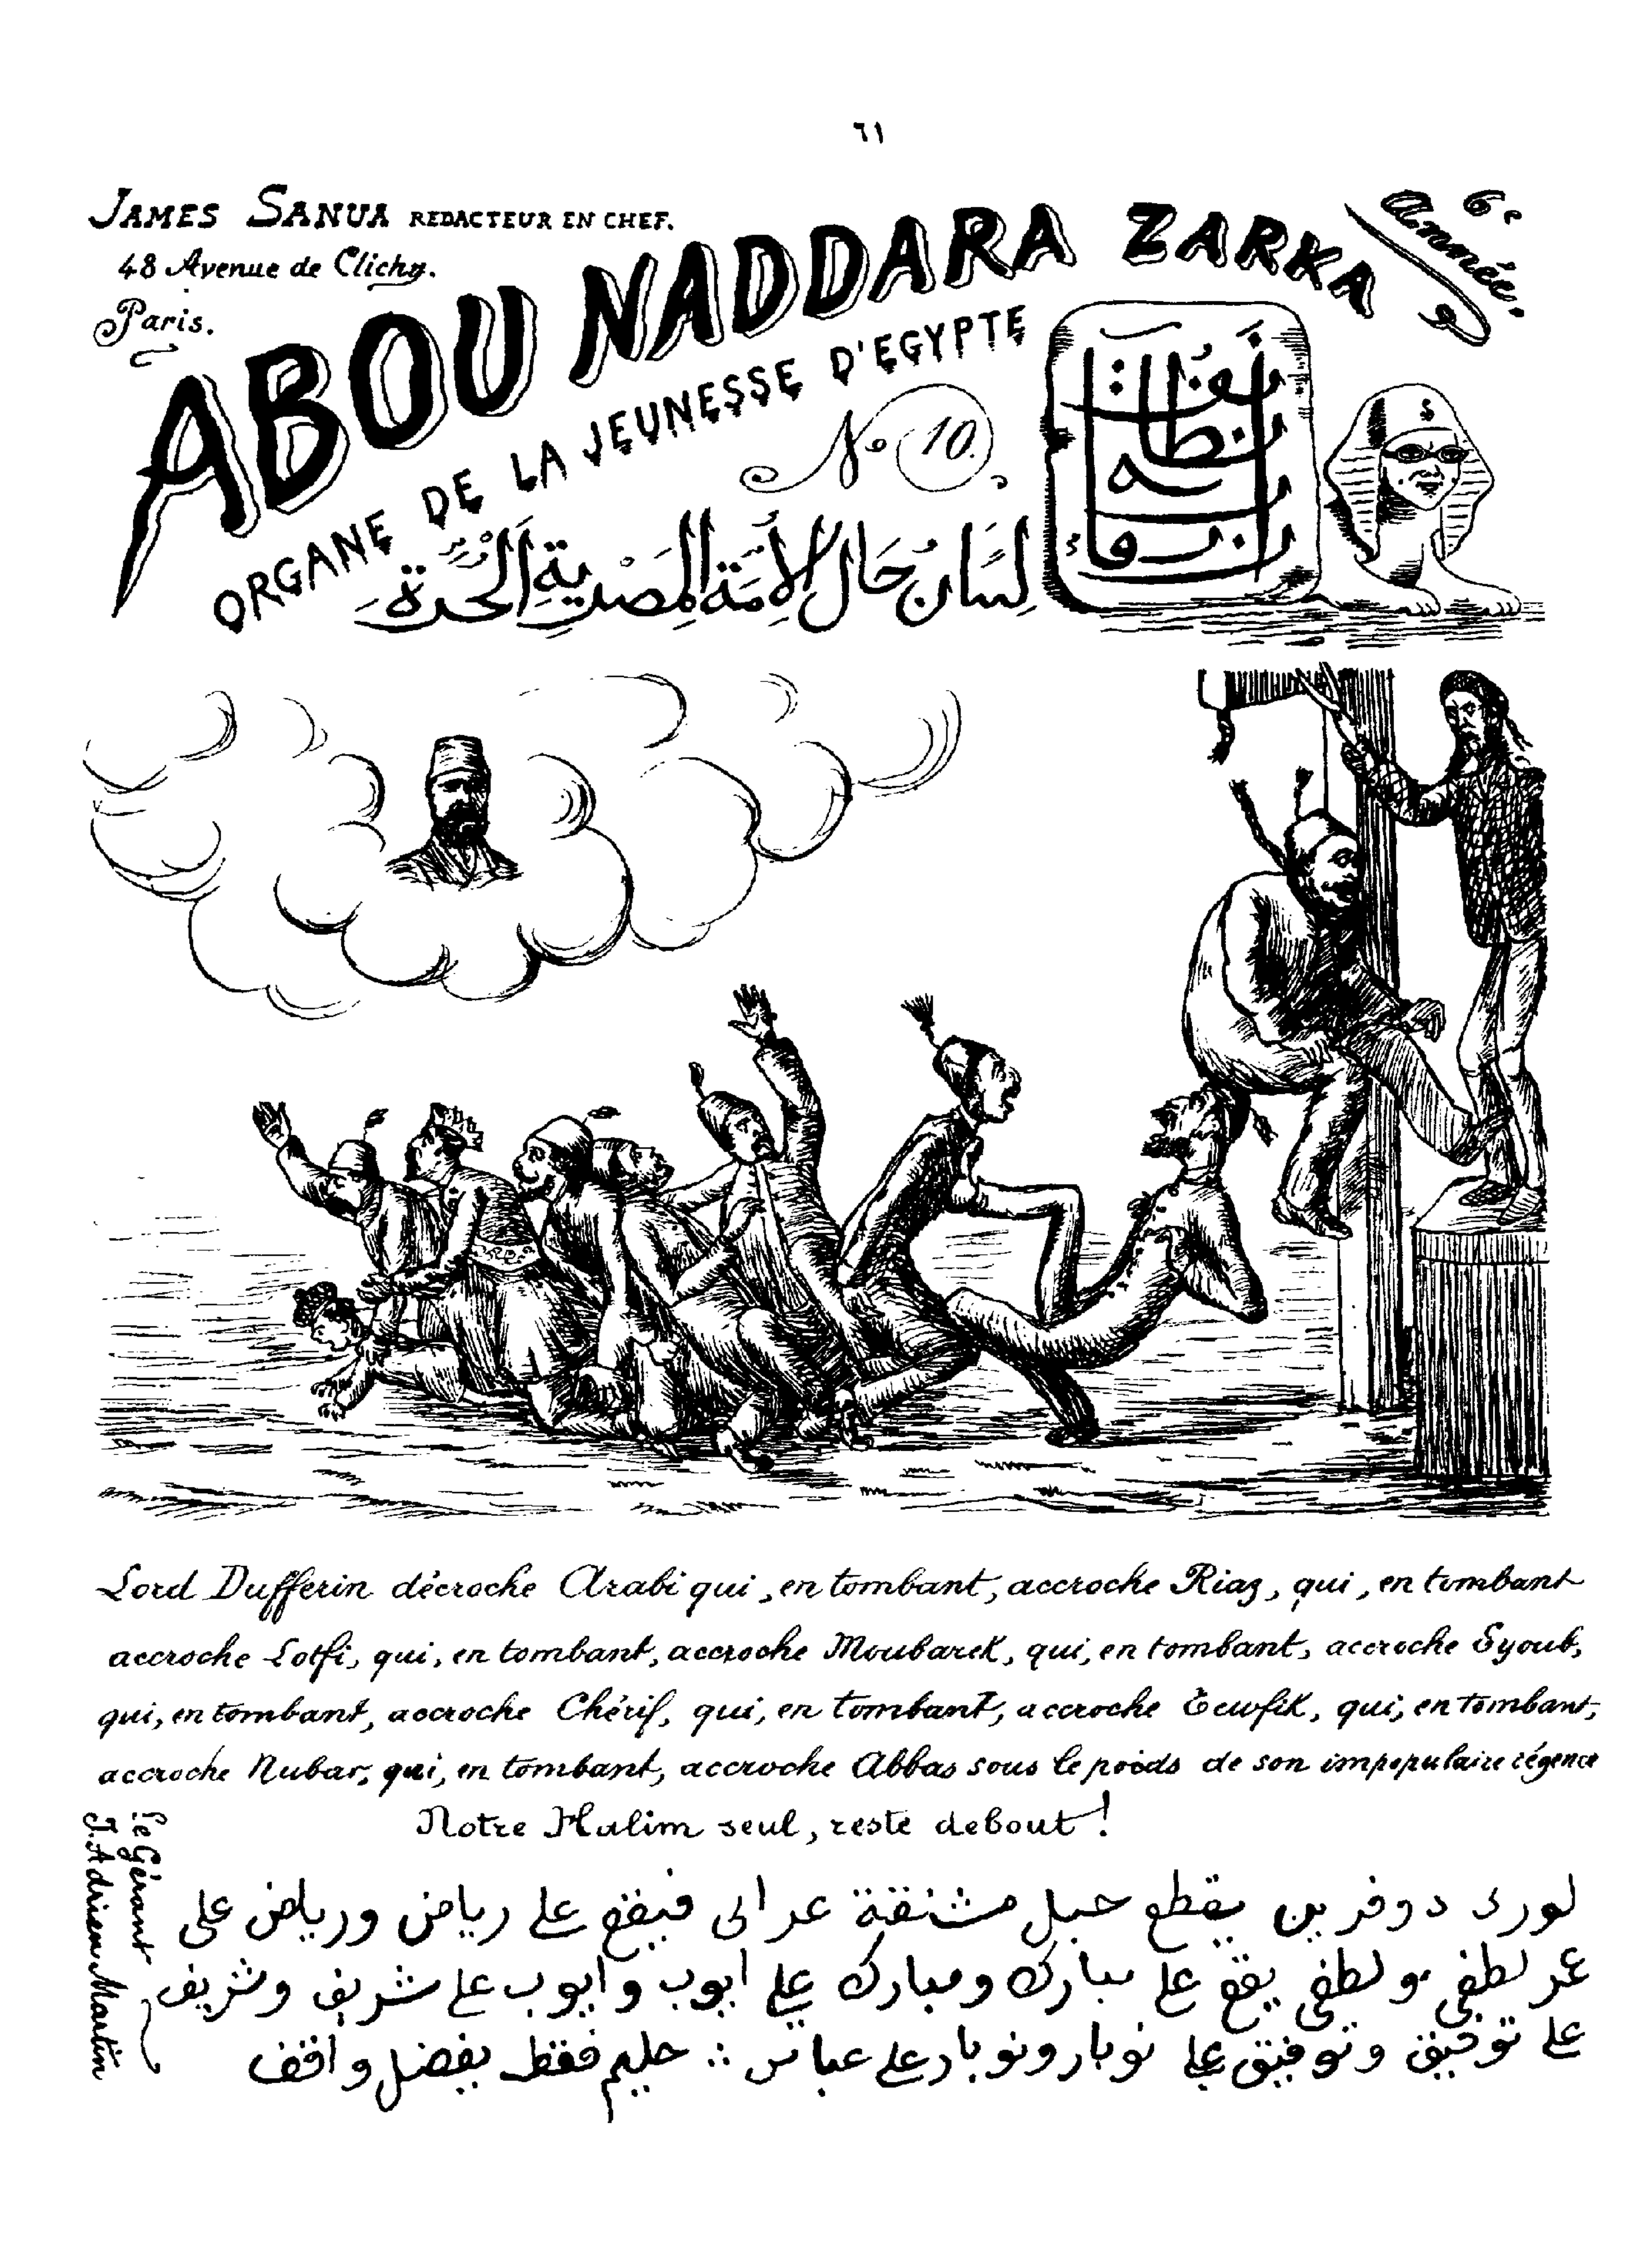 ٦١
JAMES SANUA REDACTEUR EN CHEF.
48 Avenue de Clichy.
Paris.
6e Année.
ABOU NADDARA ZARKA
ORGANE DE LA JEUNESSE D'EGYPTE
No 10.
لِسَانُ حَال الأُمَّة المَصْرِيةِ الحُرَّة
Lord Dufferin décroche Arabi qui, en tombant, accroche Riaz, qui, en tombant
accroche Lotfi, qui, en tombant, accroche Moubarek, qui, en tombant, accroche Eyoub,
qui, en tombant, accroche Chérif, qui, en tombant, accroche Tewfik, qui, en tombant,
accroche Nubar, qui, en tombant, accroche Abbas sous le poids de son impopulaire régence
Notre Halim seul, reste debout!
Le Gérant
J. Adrien Martin
لورد دوفرين يقطع حبل مشنقة عرابى فيقع على رياض ورياض على
عمر لطفى ولطفى يقع على مبارك ومبارك على ايوب وايوب على شريف وشريف
على توفيق وتوفيق على نوبار ونوبار على عباس ∴ حليم فقط يفضل واقف